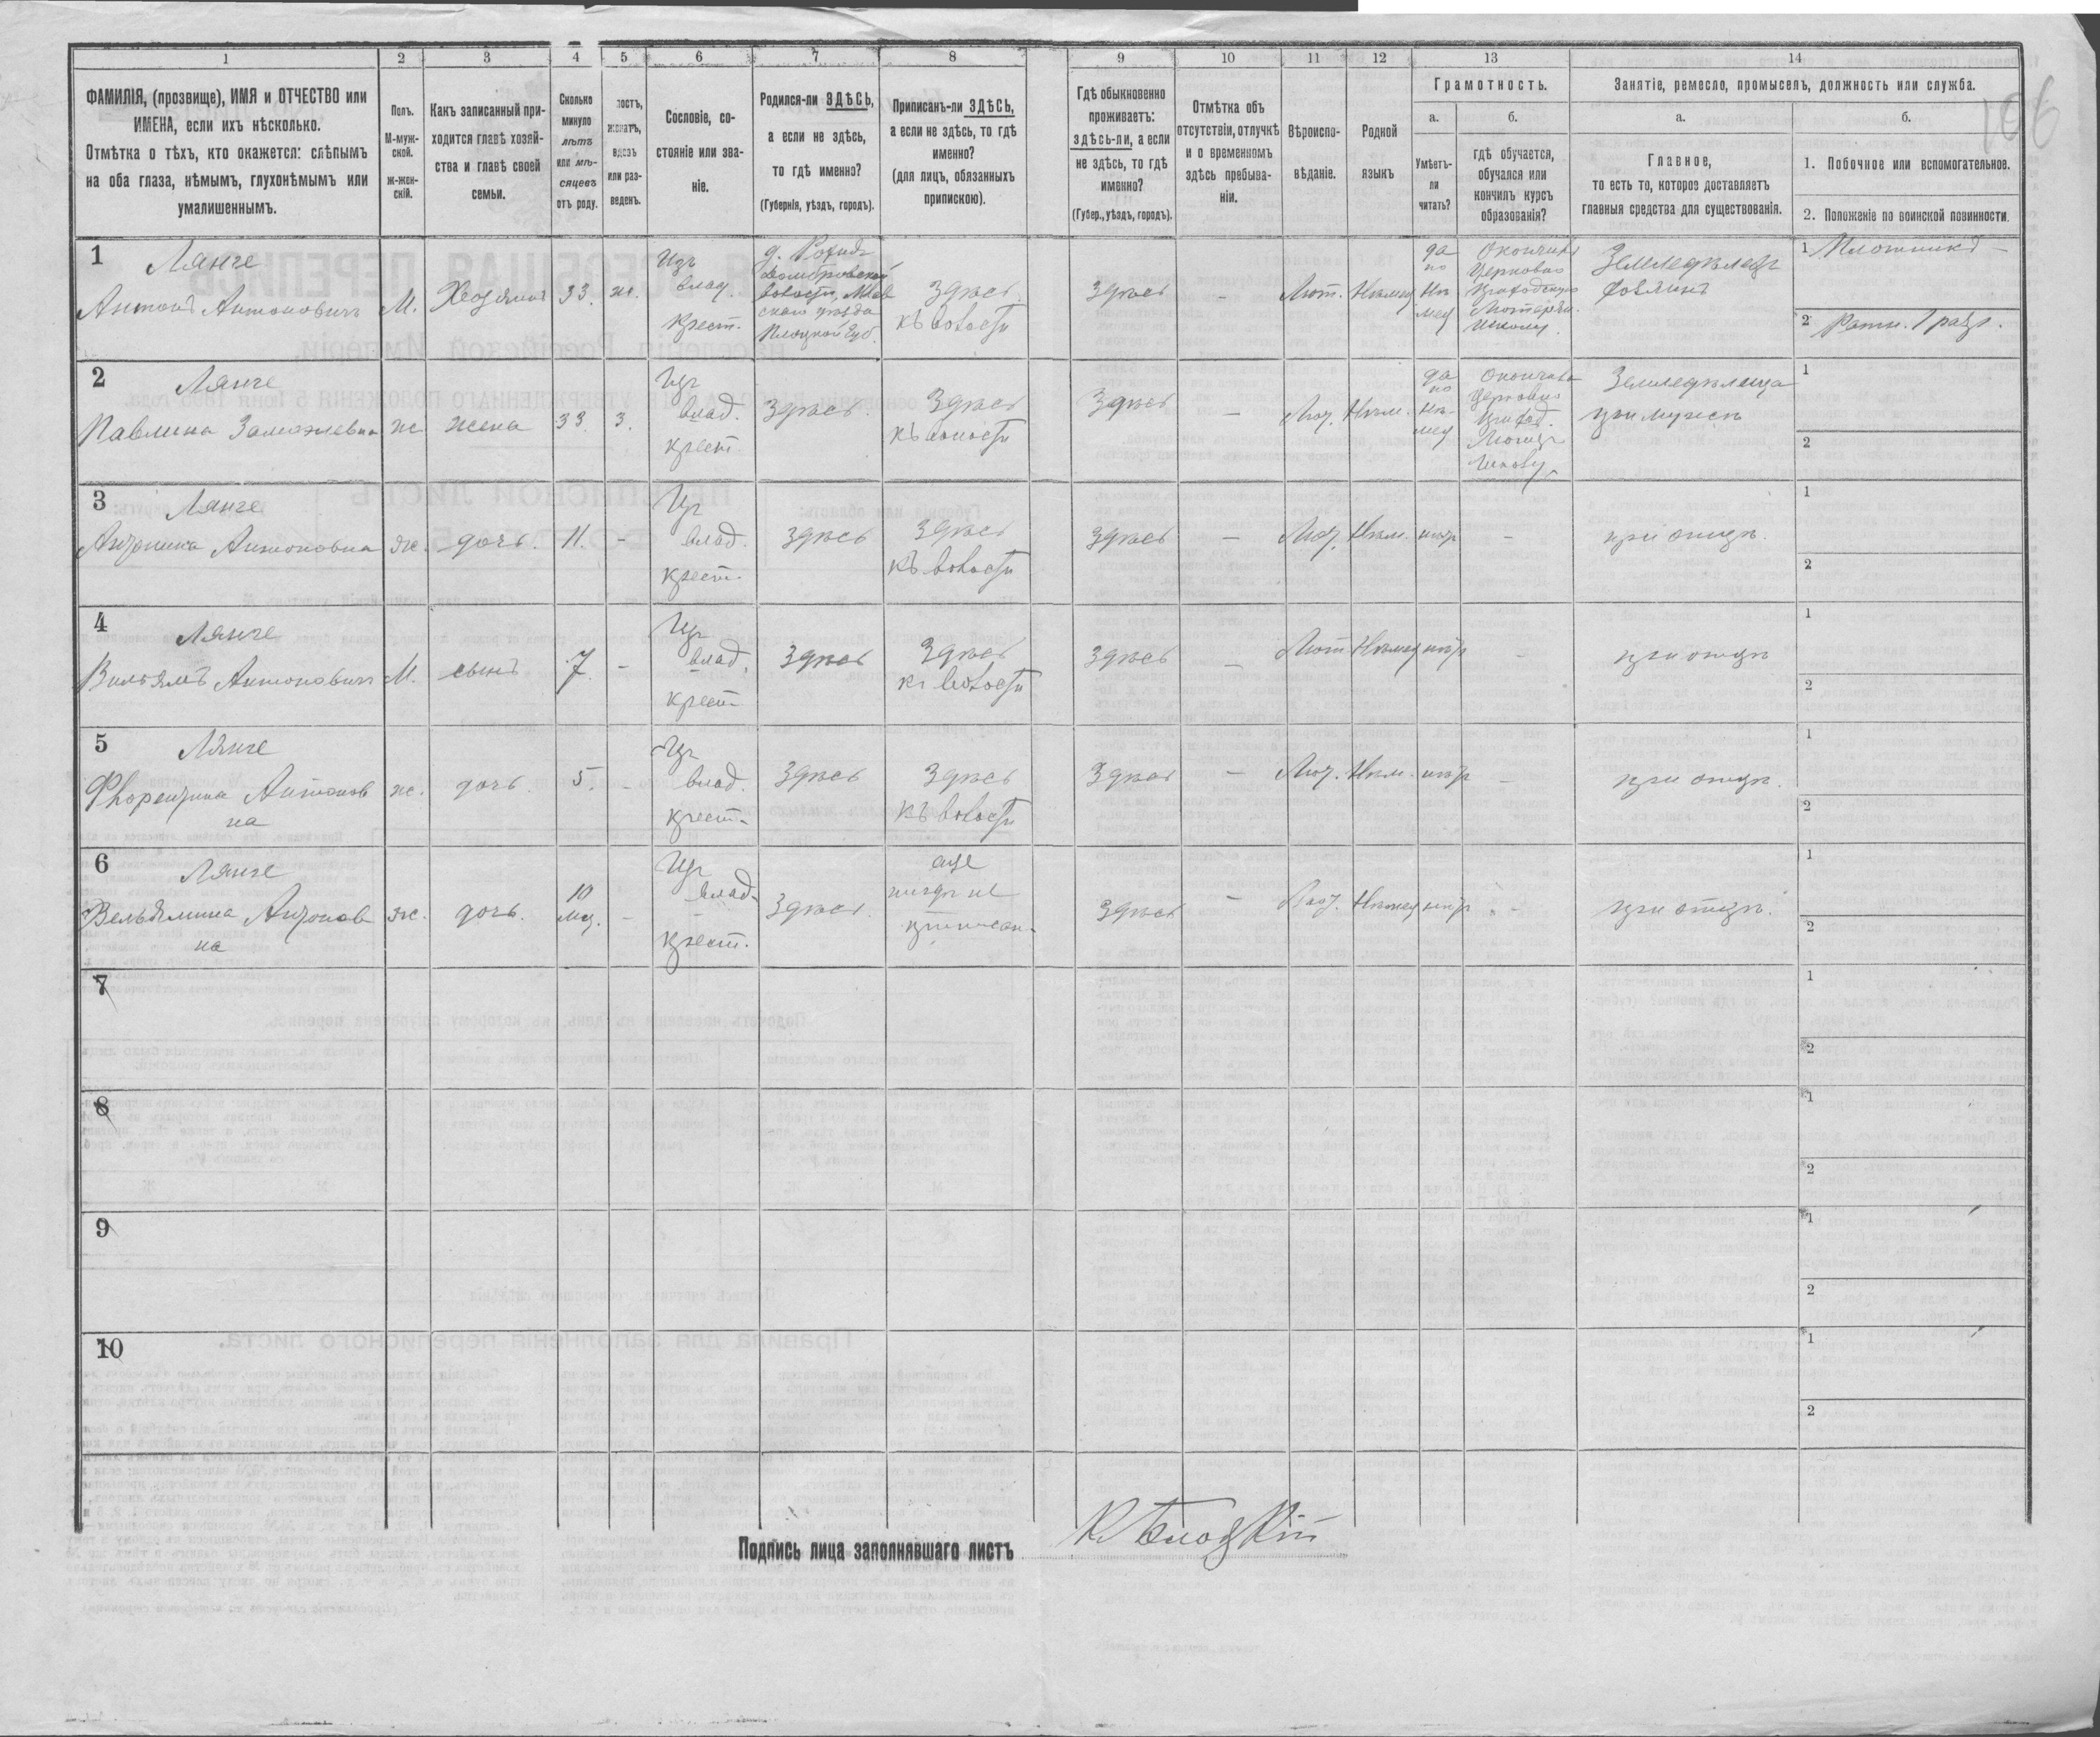 106
1 2 3 4 5 6 7 8 9 10 11 12 13 14
ФАМИЛІЯ, (прозвище), ИМЯ и ОТЧЕСТВО или
ИМЕНА, если ихъ нѣсколько.
Отмѣтка о тѣхъ, кто окажется: слѣпымъ
на оба глаза, нѣмымъ, глухонѣмымъ или
умалишеннымъ.
Полъ.
М-муж-
ской.
ж-жен-
скій.
Какъ записанный при-
ходится главѣ хозяй-
ства и главѣ своей
семьи.
Сколько
минуло
лѣтъ
или мѣ-
сяцевъ
отъ роду.
лостъ,
женатъ,
вдовъ
или раз-
веденъ.
Сословіе, со-
стояніе или зва-
ніе.
Родился-ли ЗДѢСЬ,
а если не здѣсь,
то гдѣ именно?
(Губернія, уѣздъ, городъ).
Приписанъ-ли ЗДѢСЬ,
а если не здѣсь, то гдѣ
именно?
(для лицъ, обязанныхъ
припискою).
Гдѣ обыкновенно
проживаетъ:
здѣсь-ли, а если
не здѣсь, то гдѣ
именно?
(Губер., уѣздъ, городъ).
Отмѣтка объ
отсутствіи, отлучкѣ
и о временномъ
здѣсь пребыва-
ніи.
Вѣроиспо-
вѣданіе.
Родной
языкъ
Грамотность.
а.
Умѣетъ-
ли
читать?
б.
гдѣ обучается,
обучался или
кончилъ курсъ
образованія?
Занятіе, ремесло, промыселъ, должность или служба.
а.
Главное,
то есть то, которое доставляетъ
главныя средства для существованія.
б.
1. Побочное или вспомогательное.
2. Положеніе по воинской повинности.
1
Лянге
Антонъ Антоновичъ
М.
Хозяинъ
33.
ж.
Изъ
влад.
крест.
уѣзда
Плоцкой Губ.
Здѣсь
къ волости
Здѣсь
-
Лют.
Нѣмец
да
по
Нѣ-
мец
Окончилъ
Церковно
Приходскую
школу.
Земледѣлецъ
хозяинъ
1 Плотникъ -
2 Ратн. 1 разр.
2
Лянге
Павлина
ж
жена
33.
з.
Изъ
влад.
крест.
Здѣсь.
Здѣсь
къ волости
Здѣсь
-
Лют.
Нѣм.
да
по
нѣ-
мец
Окончила
Церковно
Приход.
школу
Земледѣлица
при мужѣ
1
2
3
Лянге
Антонина Антоновна
ж.
дочь.
11.
-
Из
влад.
крест.
Здѣсь
Здѣсь
къ волости
Здѣсь
-
Лют.
Нѣм.
нѣт
-
при отцѣ.
1
2
4
Лянге
Вильямъ Антоновичъ
М.
сынъ
7.
-
Из
влад.
крест
Здѣсь
Здѣсь
къ волости
Здѣсь
-
Лют
Нѣмец
нѣт
-
при отцѣ
1
2
5
Лянге
Флорентина Антонов
на
ж.
дочь
5.
-
Из
влад.
крест.
Здѣсь
Здѣсь
къ волости
Здѣсь
-
Лют.
Нѣм.
нѣт
-
при отцѣ.
1
2
6
Лянге
Вельямина Антонов
на
ж.
дочь.
10
мц.
-
Из
влад.
крест.
Здѣсь.
еще
нигдѣ не
приписан.
Здѣсь
-
Лют.
Нѣмец
нѣт
-
при отцѣ.
1
2
7
1
2
8
1
2
9
1
2
10
1
2
Подпись лица заполнявшаго листъ